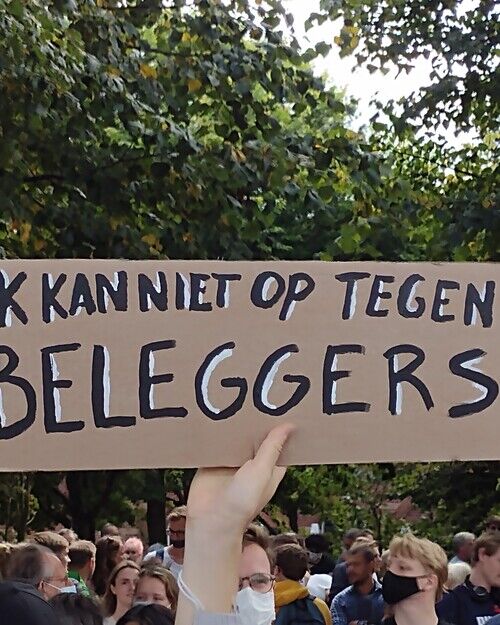 K KAN NIET OP TEGEN
BELEGGERS